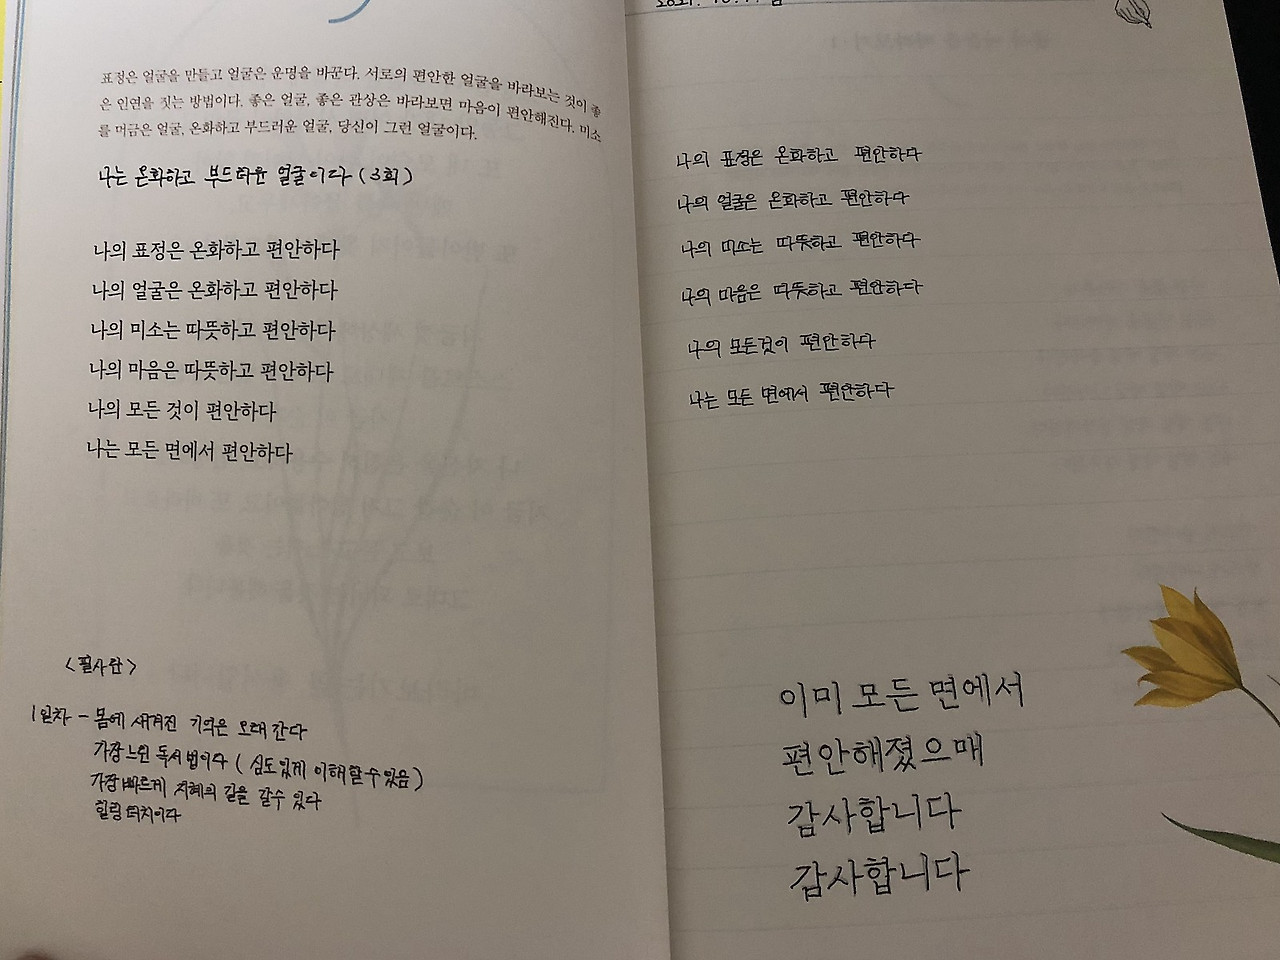 표정은 얼굴을 만들고 얼굴은 운명을 바꾼다. 서로의 편안한 얼굴을 바라보는 것이 좋
은 인연을 짓는 방법이다. 좋은 얼굴, 좋은 관상은 바라보면 마음이 편안해진다. 미소
를 머금은 얼굴, 온화하고 부드러운 얼굴, 당신이 그런 얼굴이다.
나는 온화하고 부드러운 얼굴이다 (3회)
나의 표정은 온화하고 편안하다
나의 얼굴은 온화하고 편안하다
나의 미소는 따뜻하고 편안하다
나의 마음은 따뜻하고 편안하다
나의 모든 것이 편안하다
나는 모든 면에서 편안하다
<필사란>
1일차 - 몸에 새겨진 기억은 오래 간다
가장 느린 독서법이다 (심도있게 이해할수있음)
가장 빠르게 지혜의 길을 갈수 있다
힐링 터치이다
나의 표정은 온화하고 편안하다
나의 얼굴은 온화하고 편안하다
나의 미소는 따뜻하고 편안하다
나의 마음은 따뜻하고 편안하다
나의 모든것이 편안하다
나는 모든 면에서 편안하다
이미 모든 면에서
편안해졌으매
감사합니다
감사합니다